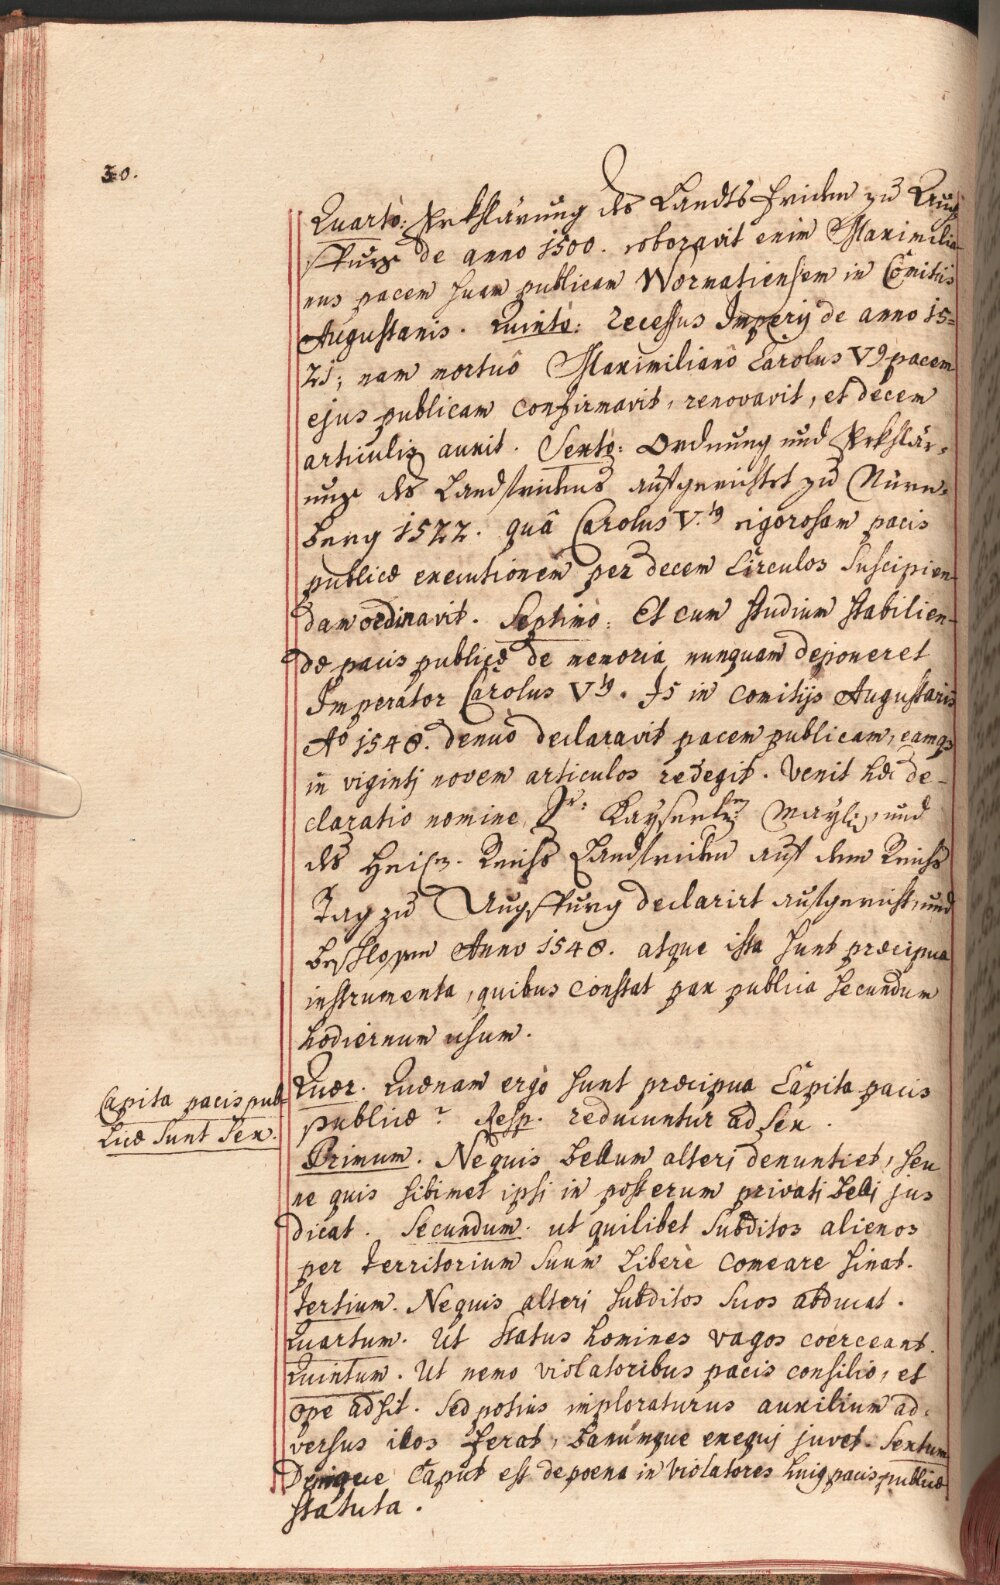 30.
Quartò: Erklärung des Landts Friden zu Aug-
spurg de anno 1500. roboravit enim Maximilia-
nus pacem suam publicam Wormatiensem in Comitiis
Augustanis. Quintò: Recessus Imperij de anno 15=
21; nam mortuô Maximilianô Carolus V9 pacem
ejus publicam confirmavit, renovavit, et decem
articulis auxit. Sextò: Ordnung und Erklär-
ung des Landfridens aufgerichtet zu Nürn-
berg 1522. quâ Carolus V.19 rigorosam pacis
publicæ executionem per decem Circulos suscipien-
dam ordinavit. Septimò: Et cum studium stabilien-
dæ pacis publicæ de memoria nunquam deponeret
Imperator Carolus V19. Is in comitijs Augustanis
Aô 1548. denuò declaravit pacem publicam, eamq3
in vigintj novem articulos redegit. Venit hæc de-
claratio nomine Kayserl: Mayls, und
des Heil. Reichs Landfriden auf dem Reichs
Tag zu Augspurg declarirt aufgericht, und
beschlossen Anno 1548. atque ista sunt præcipua
instrumenta, quibus constat pax publica secundum
hodiernum usum.
Capita pacis pub-
licæ sunt sex.
Quær. Quænam ergò sunt præcipua Capita pacis
publicæ? Resp. reducuntur ad sex.
Primum. Ne quis bellum alterj denuntiet, seu
ne quis sibimet ipsi in posterum privatj bellj jus
dicat. Secundum. ut quilibet subditos alienos
per territorium suum liberè comeare sinat.
Tertium. Ne quis alterj subditos suos abducat.
Quartum. Ut status homines vagos coerceant.
Quintum. Ut nemo violatoribus pacis consilio, et
ope adsit. Sed potius imploraturus auxilium ad-
versus illos ferat, bannumque exequj juvet. Sextum
Denique Caput est de poena in violatores hui9 pacis publicæ
statuta.